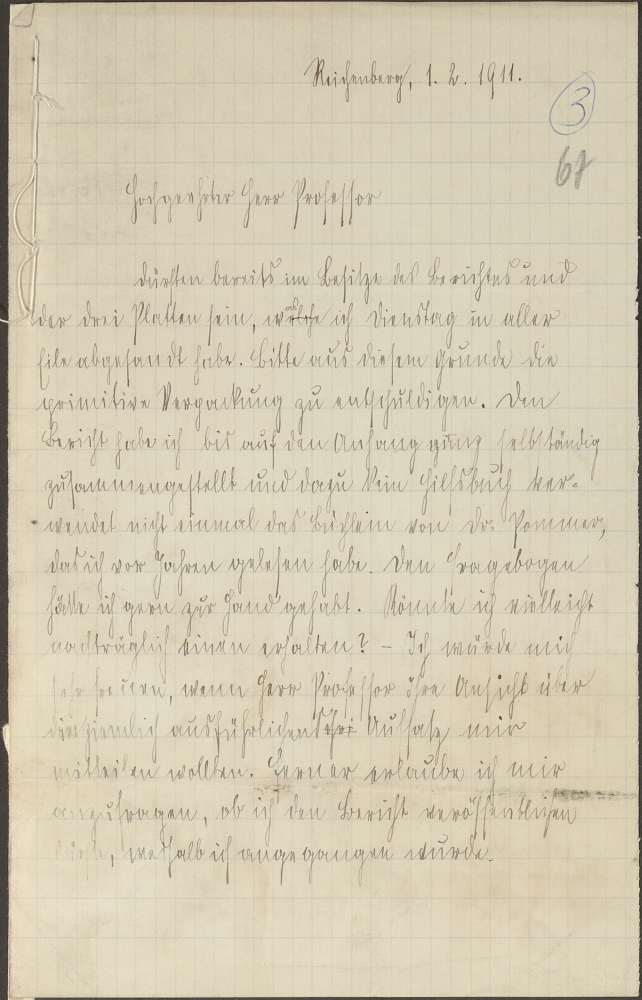 Reichenberg, 1. 2. 1911.
3
67
Hochgeehrter Herr Professor
dürften bereits im Besitze des Berichtes und
der drei Platten sein, welche ich Dienstag in aller
Eile abgesandt habe. Bitte aus diesem Grunde die
primitive Verpackung zu entschuldigen. Den
Bericht habe ich bis auf den Anfang ganz selbständig
zusammengestellt und dazu kein Hilfsbuch ver-
wendet nicht einmal das Büchlein von Dr. Pommer,
das ich vor Jahren gelesen habe. Den Fragebogen
hätte ich gern zur Hand gehabt. Könnte ich vielleicht
nachträglich einen erhalten? – Ich würde mich
sehr freuen, wenn Herr Professor ihre Ansicht über
ziemlich ausführlichen Aufsatz mir
mitteilen wollten. Ferner erlaube ich mir
anzufragen, ob ich den Bericht veröffentlichen
dürfte, weshalb ich angegangen wurde.